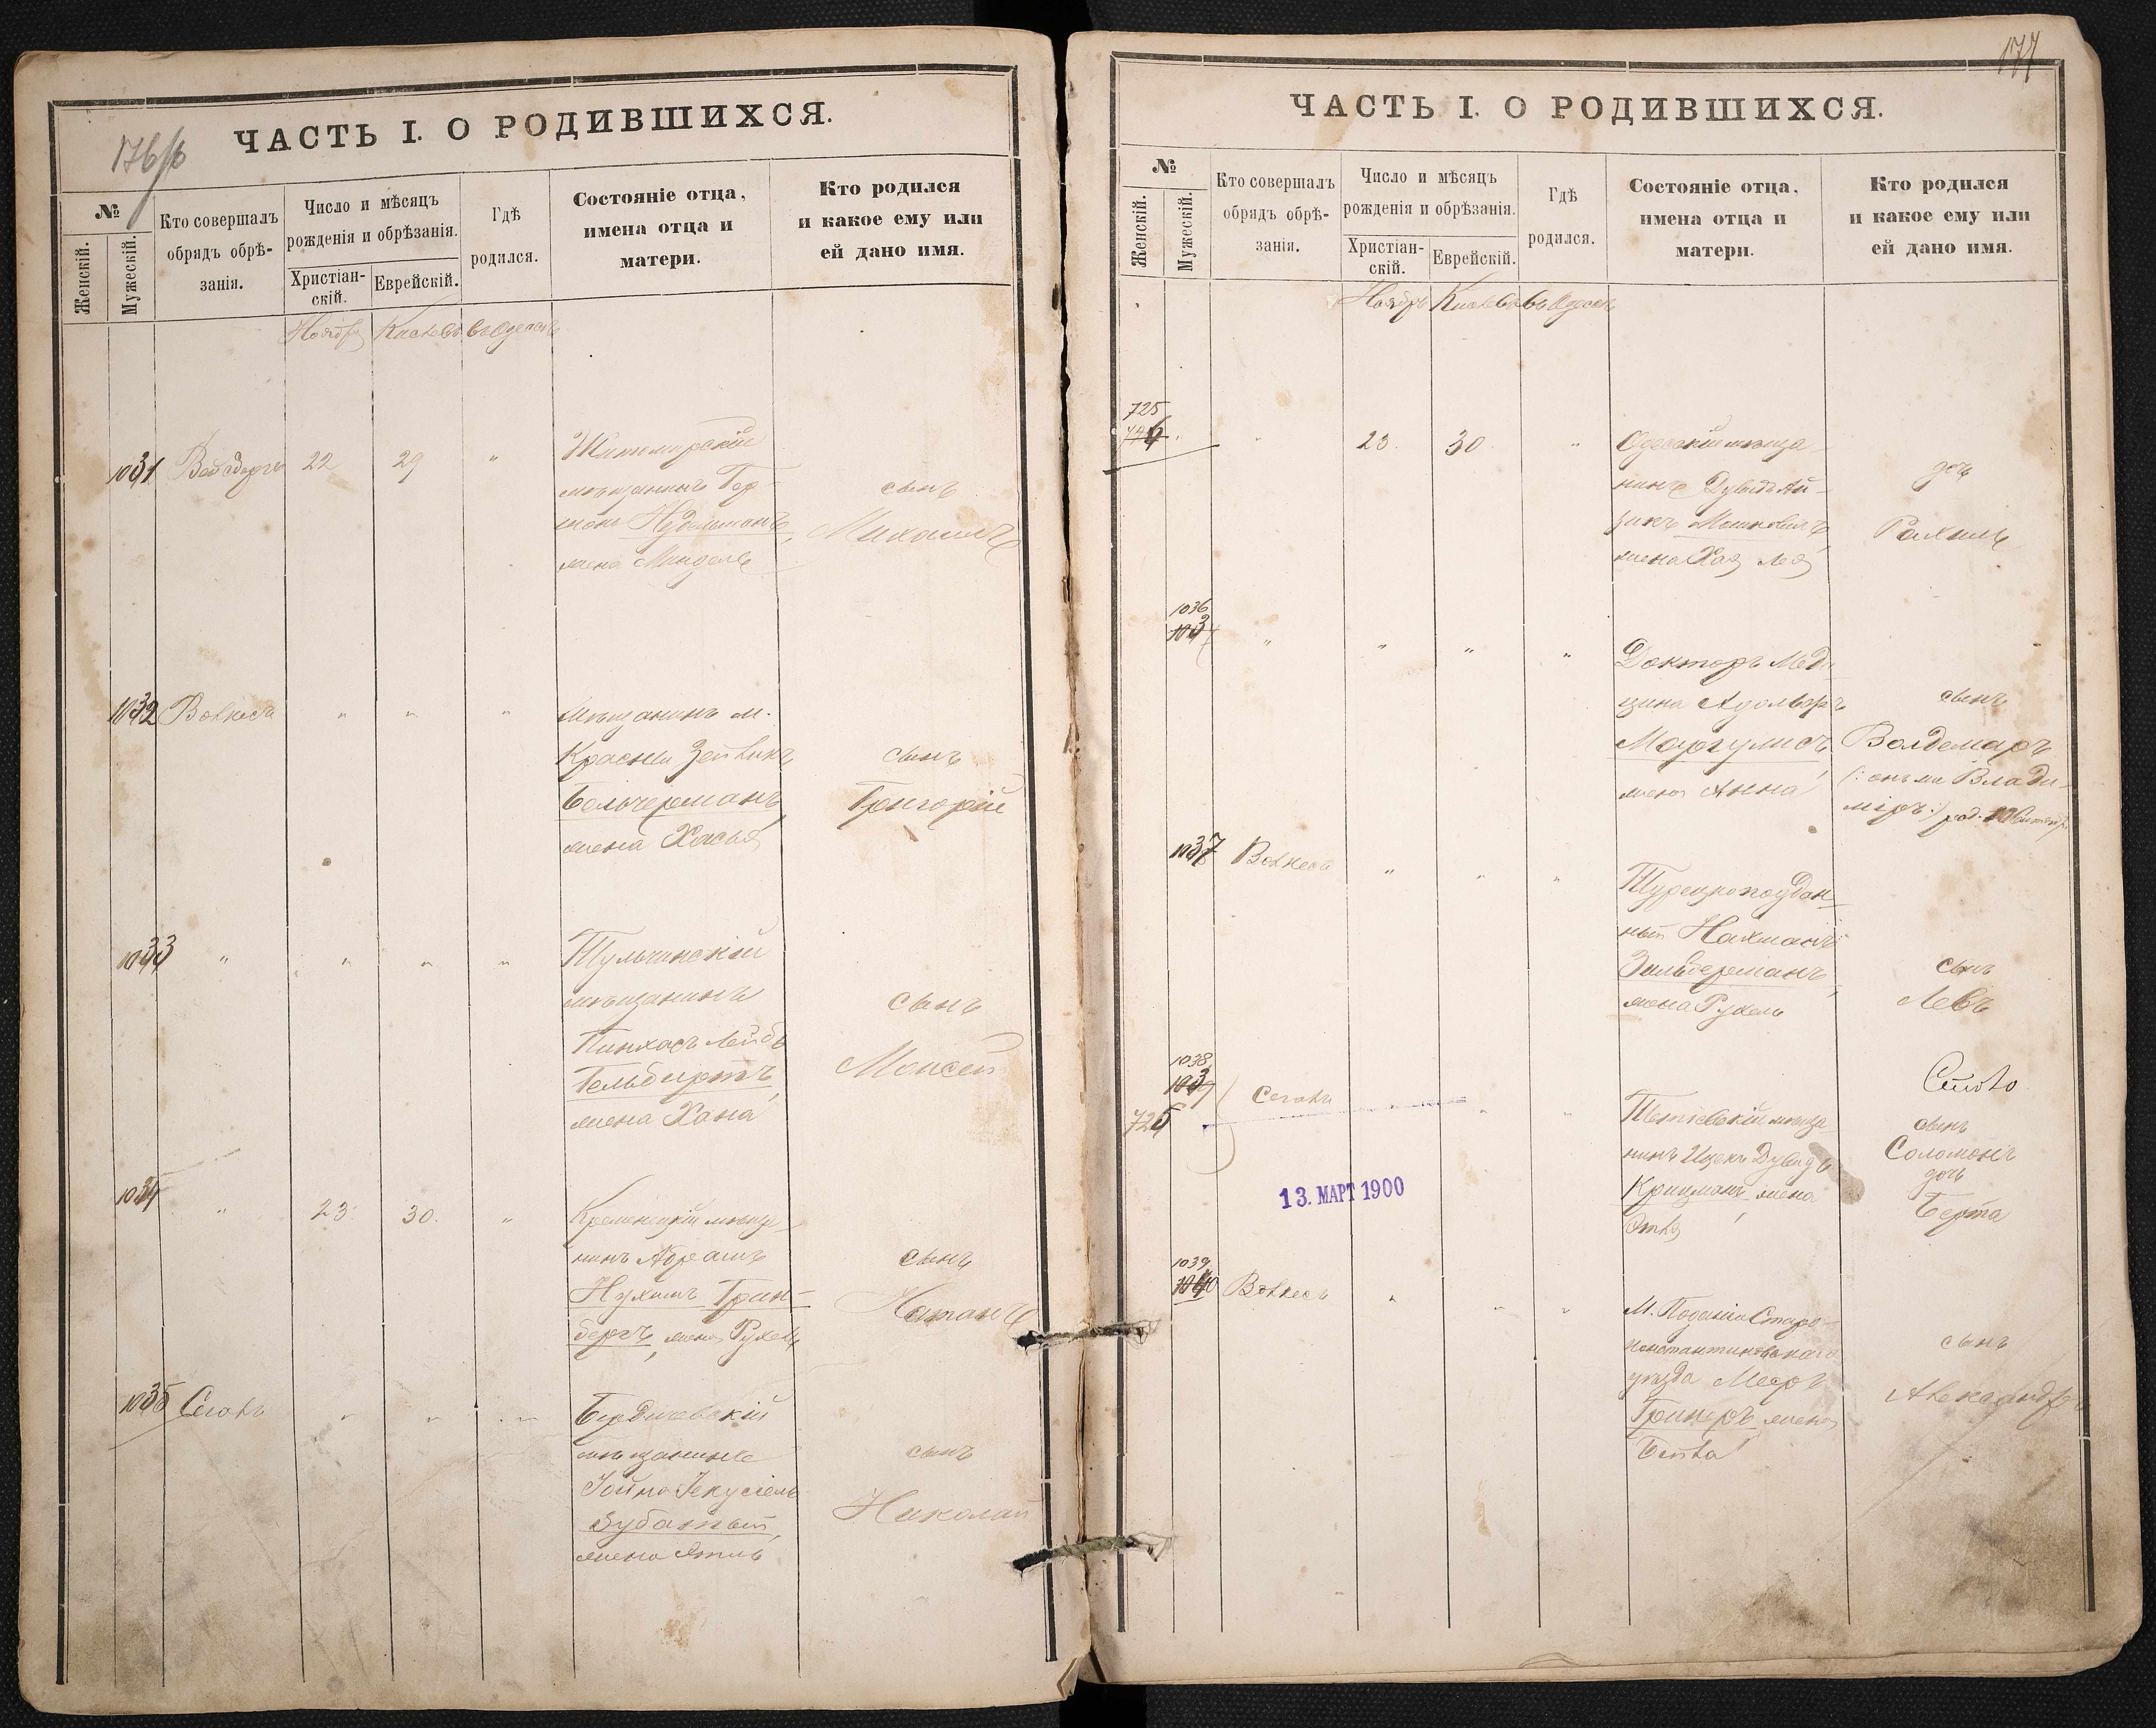 176/б
ЧАСТЬ I. О РОДИВШИХСЯ.
№
Женскій.
Мужескій.
Кто совершалъ
обрядъ обрѣ-
занія.
Число и мѣсяцъ
рожденія и обрѣзанія.
Христіан-
скій.
Еврейскій.
Гдѣ
родился.
Состояніе отца,
имена отца и
матери.
Кто родился
и какое ему или
ей дано имя.
Ноябрь Кислевъ въ Одессѣ
1031 Вайсбергъ 22 29 "
Житомирскій
мѣщанинъ Гер-
шонъ Нудельманъ,
жена Миндель
сынъ
Михаилъ
1032 " " "
мѣщанинъ м.
Красни
жена Хасья
сынъ
Григорій
1033 " " " "
Тульчинскій
мѣщанинъ
Пинхасъ Лейбъ
Гельбиртъ,
жена Хана
сынъ
Моисей
1034 " 23 30. "
Кременецкій мѣща-
нинъ Абрамъ
Нухимъ Грин-
бергъ, жена Рухель
сынъ
Натанъ
1035 Сеговъ " " "
Бердичевскій
мѣщанинъ
Іойна Іекусіель
Зубатый,
жена Этиль
сынъ
Николай
177
ЧАСТЬ I. О РОДИВШИХСЯ.
№
Женскій.
Мужескій.
Кто совершалъ
обрядъ обрѣ-
занія.
Число и мѣсяцъ
рожденія и обрѣзанія.
Христіан-
скій.
Еврейскій.
Гдѣ
родился.
Состояніе отца,
имена отца и
матери.
Кто родился
и какое ему или
ей дано имя.
Ноябрь Кислевъ въ Одессѣ
725
" 23. 30 "
Одесскій мѣща-
нинъ Дувидъ Ай-
зикъ Мошковичъ,
жена Хая Лея
дочь
Рахиль
1036
" " " "
Докторъ Меди-
цины Адольфъ
Маргулисъ,
жена Анна
сынъ
Волдемаръ
(: онъ же Влади-
міръ :) род.
1037 " " "
Турецкоподдан-
ный Нахманъ
Зильберманъ,
жена Рухель
сынъ
Левъ
1038
726
Сеговъ " "
Тетіевскій мѣща-
нинъ Ицекъ Дувидъ
Крицманъ, жена
сынъ
Соломонъ
дочь
Берта
13. МАРТ 1900
1039
" " "
М. Староконстантиновскаго
уѣзда Мееръ
Гринеръ жена
Бейла
сынъ
Александръ